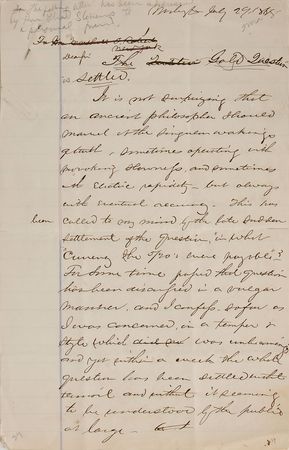 July 29, 1865
To
Dear Sir
The Gold Question
is settled.
It is not surprising that
an ancient philosopher should
marvel at the singular workings
of truth, sometimes operating with
provoking slowness, and sometimes
with Electric rapidity - but always
with eventual accuracy. This has
been
called to my mind by the late sudden
settlement of the question, in what
Currency the 7 30's were payable?
For some time past that question
has been discussed in a vulgar
manner, and I confess, so far as
I was concerned, in a temper &
style which was unbecoming
and yet within a week the whole
question has been settled without
turmoil and without it seeming
to be understood by the public
at large -